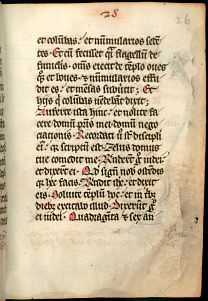 28
26
et columbas. et numularios seden
tes. Et cū fecisset q̄si flagellum de
funiculis. om̄s eiecit de tēplo oues
q̨ et boues. et numulariorū effu
dit es. et mēsas subūtit. Et
hijs q̄ columbas uendebāt dixit.
Auferte ista hinc. et nolite face
re domū pr̄is mei domum nego
ciationis. Recordati sūt discipli
eiꝰ q̄ scriptū est Zelus domus
tue comedit me. Rnderūt g̊ iudei
et dixerūt ei. Qd̓ signū nob̓ ostēdis
q̄ hec facis. Rn̄dit ihc et dixit
eis. Soluite tēplū hoc et in tbꝰ
diebꝫ excitabo illud. Dixerūt g̊
ei iudei. Quadraginta et sex an